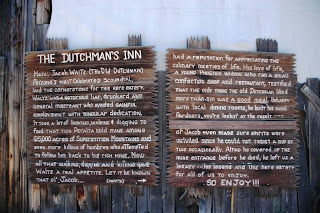 THE DUTCHMAN'S INN
Herr. Jacob Waitz (The Old Dutchman)
Arizona's most celebrated scoundrel,
laid the cornerstone for this here eatery.
Waitz was a notorious liar, drunkard and
general miscreant who avoided gainful
employment with singular dedication.
It took a lot of boozing, whoring & digging to
find that rich Peralta gold mine among
85,000 acres of Superstition Mountains and
even more killing of hombres who attempted
to follow him back to his rich mine. Now
all that boozing, digging and killing gave
Waitz a real appetite. Let it be known
that ol' Jacob... (CONT'D)
had a reputation for appreciating the
culinary niceties of life. His love of life,
a young Phoenix widow who ran a small
confection shop and restaurant, testified
that the only thing the old Dutchman liked
more than sin was a good meal. Unhappy
with local dining rooms, he built his own!
Pardners, you're lookin' at the result.
ol' Jacob even made sure spirits were
included since he could out thirst a cup or
two occasionally. Altho he covered up the
mine entrance before he died, he left us a
legacy - the legend and this here eatery
for all of us to enjoy.
SO ENJOY!!!